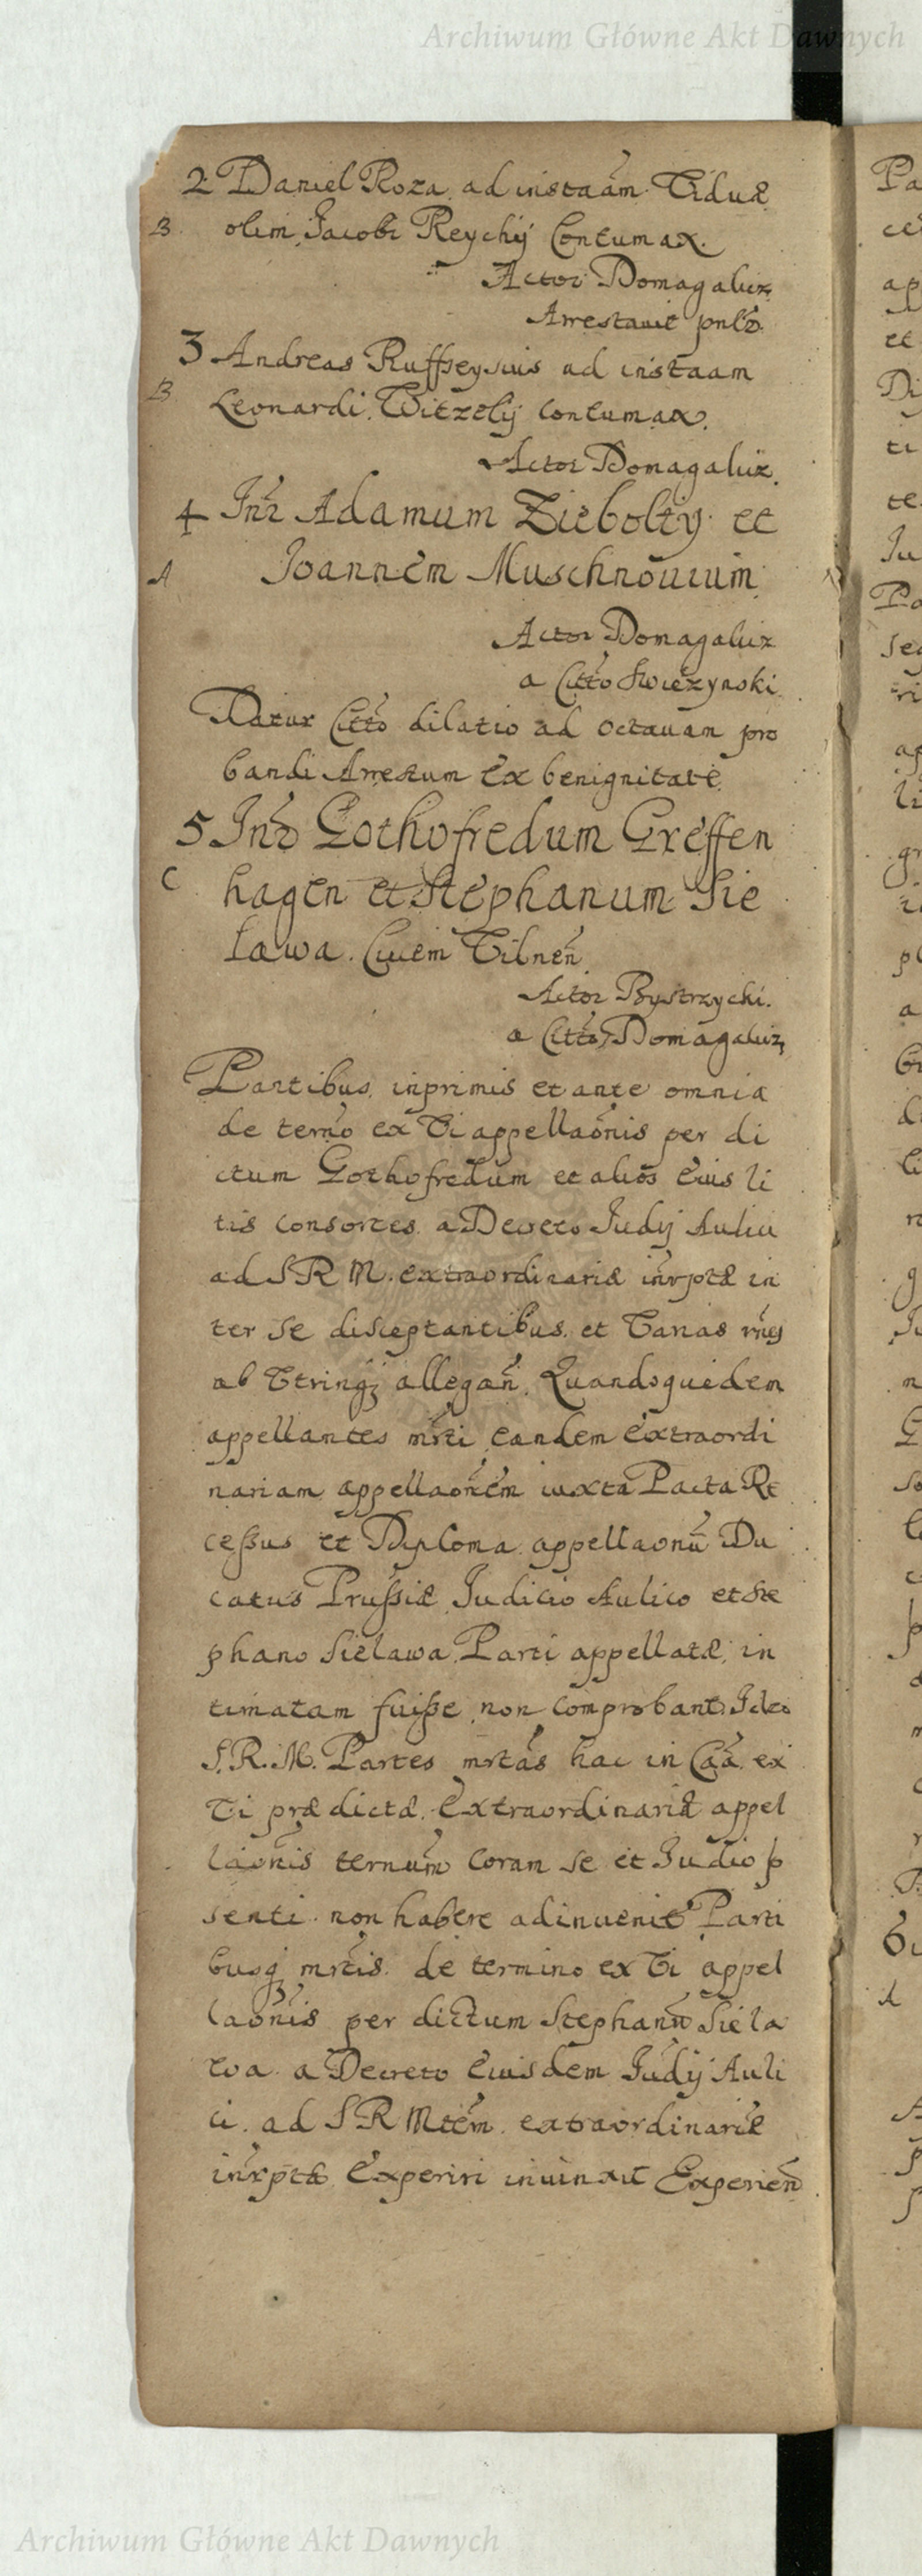 Archiwum Główne Akt Dawnych
2 Daniel Roza ad instaãm Viduæ
B olim Jacobi Reychij Contumax.
Actor Domagalicz
Arrestavit
3 Andreas Ruffseysius ad instaam
B Leonardi Witzelij contumax.
Actor Domagalicz
4 Inr Adamum Ziebolty et
A Joannem Muschnouium
Actor Domagalicz
a Citto Swieżynski
Datur Citto dilatio ad octauam pro
bandi Arrestum ex benignitate
5 Inr Gothofredum Greffen
C hagen et Stephanum Sie
lawa Ciuem Vilnen̄
Actor Bystrzycki.
a Citto Domagalicz
Partibus inprimis et ante omnia
de termo ex Vi appellaonis per di
ctum Gothofredum et alios Eius li
tis consortes a Decreto Judij Aulici
ad S R M. extraordinariæ inrptæ in
ter se disceptantibus et Varias rnes
ab Vtrinq; allegan̄. Quandoquidem
appellantes mrti eandem Extraordi
nariam appellaonem iuxta Pacta Re
cessus et Diploma appellaonū Du
catus Prussiæ Judicio Aulico et Ste
phano Sielawa Parti appellatæ in
timatam fuisse non comprobant. Ideo
S. R. M. Partes mrtas hac in Caā ex
Vi prædictæ Extraordinariæ appel
laonis ternum coram se et Judio p
senti non habere adinuenit Parti
busq; mrtis de termino ex Vi appel
laonis per dictum Stephanū Siela
wa a Decreto Eiusdem Judij Auli
ci ad S R Mtem extraordinariæ
inrptæ Experiri iniunxit Experien̄
Archiwum Główne Akt Dawnych